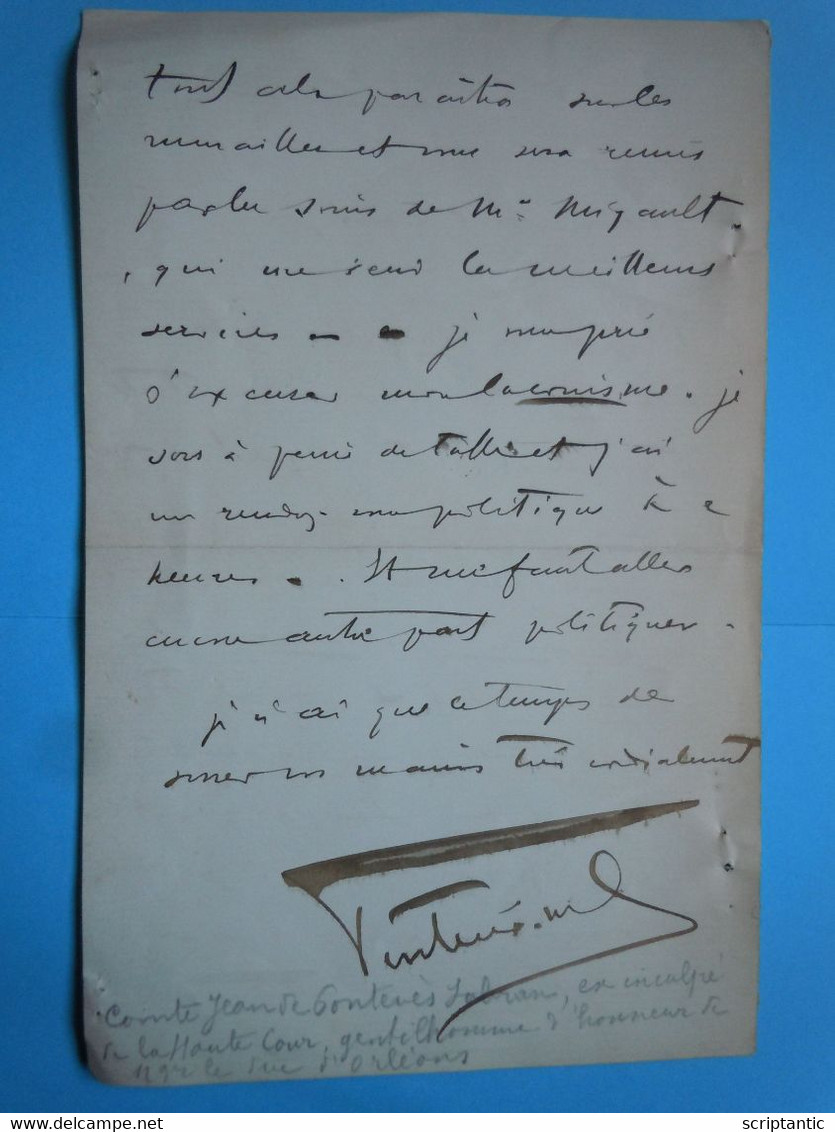 Tout cela paraîtra sur les
murailles et me sera remis
par les soins de Mr Migault
, qui me rend les meilleurs
services - - je vous prie
d'excuser mon laconisme. je
sors à peine de table et j'ai
un rendez-vous politique à 2
heures - . Il me faut aller
encore autre part politiquer -
je n'ai que le temps de
serrer vos mains très cordialement
Pontevès
Comte Jean de Pontevès Sabran, ex inculpé
de la Haute Cour, gentilhomme d'honneur de
Mgr le Duc d'Orléans
scriptantic